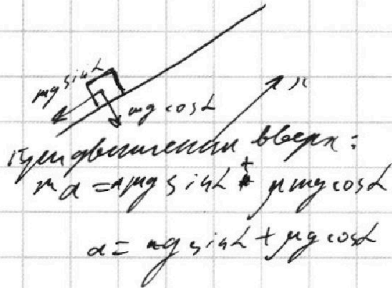 mg sinL
x
mg cosL
При движении вверх:
ma = mg sinL + μmg cosL
a = g sinL + μg cosL